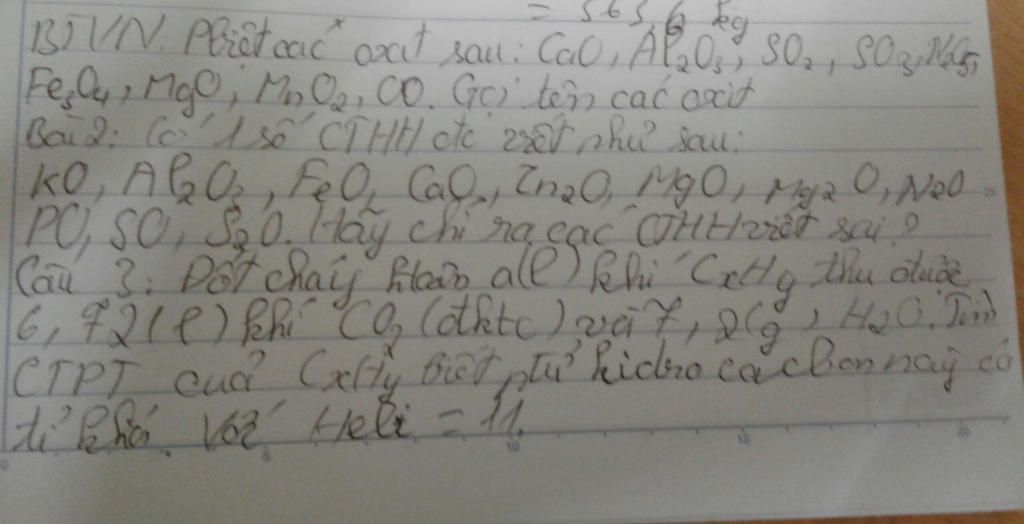 = 563,6 kg
BTVN: Pbiệt các oxit sau: CaO, Al2O3, SO2, SO3, N2O5,
Fe3O4, MgO, MnO2, CO. Gọi tên các oxit
Bài 2: Có 1 số CTHH đc viết như sau:
KO, Al2O3, FeO, CaO, Zn2O, MgO, Mg2O, N2O
PO, SO, S2O. Hãy chỉ ra các CTHH viết sai?
Câu 3: Đốt cháy htoàn a(l) khí CxHy thu được
6,72(l) khí CO2 (đktc) và 7,2(g) H2O. Tìm
CTPT của CxHy biết hidro cacbon này có
tỉ khối với Heli = 11.
0 5 10 15 20